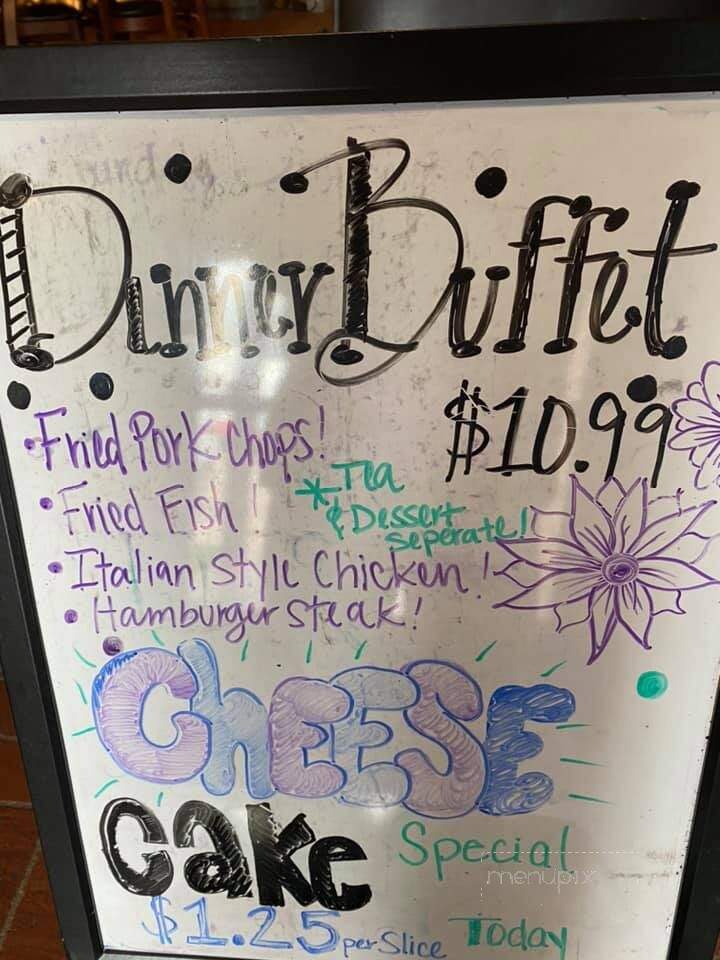 Dinner Buffet
$10.99
• Fried Pork Chops!
• Fried Fish!
* Tea
& Dessert
seperate!
• Italian Style Chicken!
• Hamburger Steak!
CHEESE
Cake Special
menupix
$1.25 per Slice Today